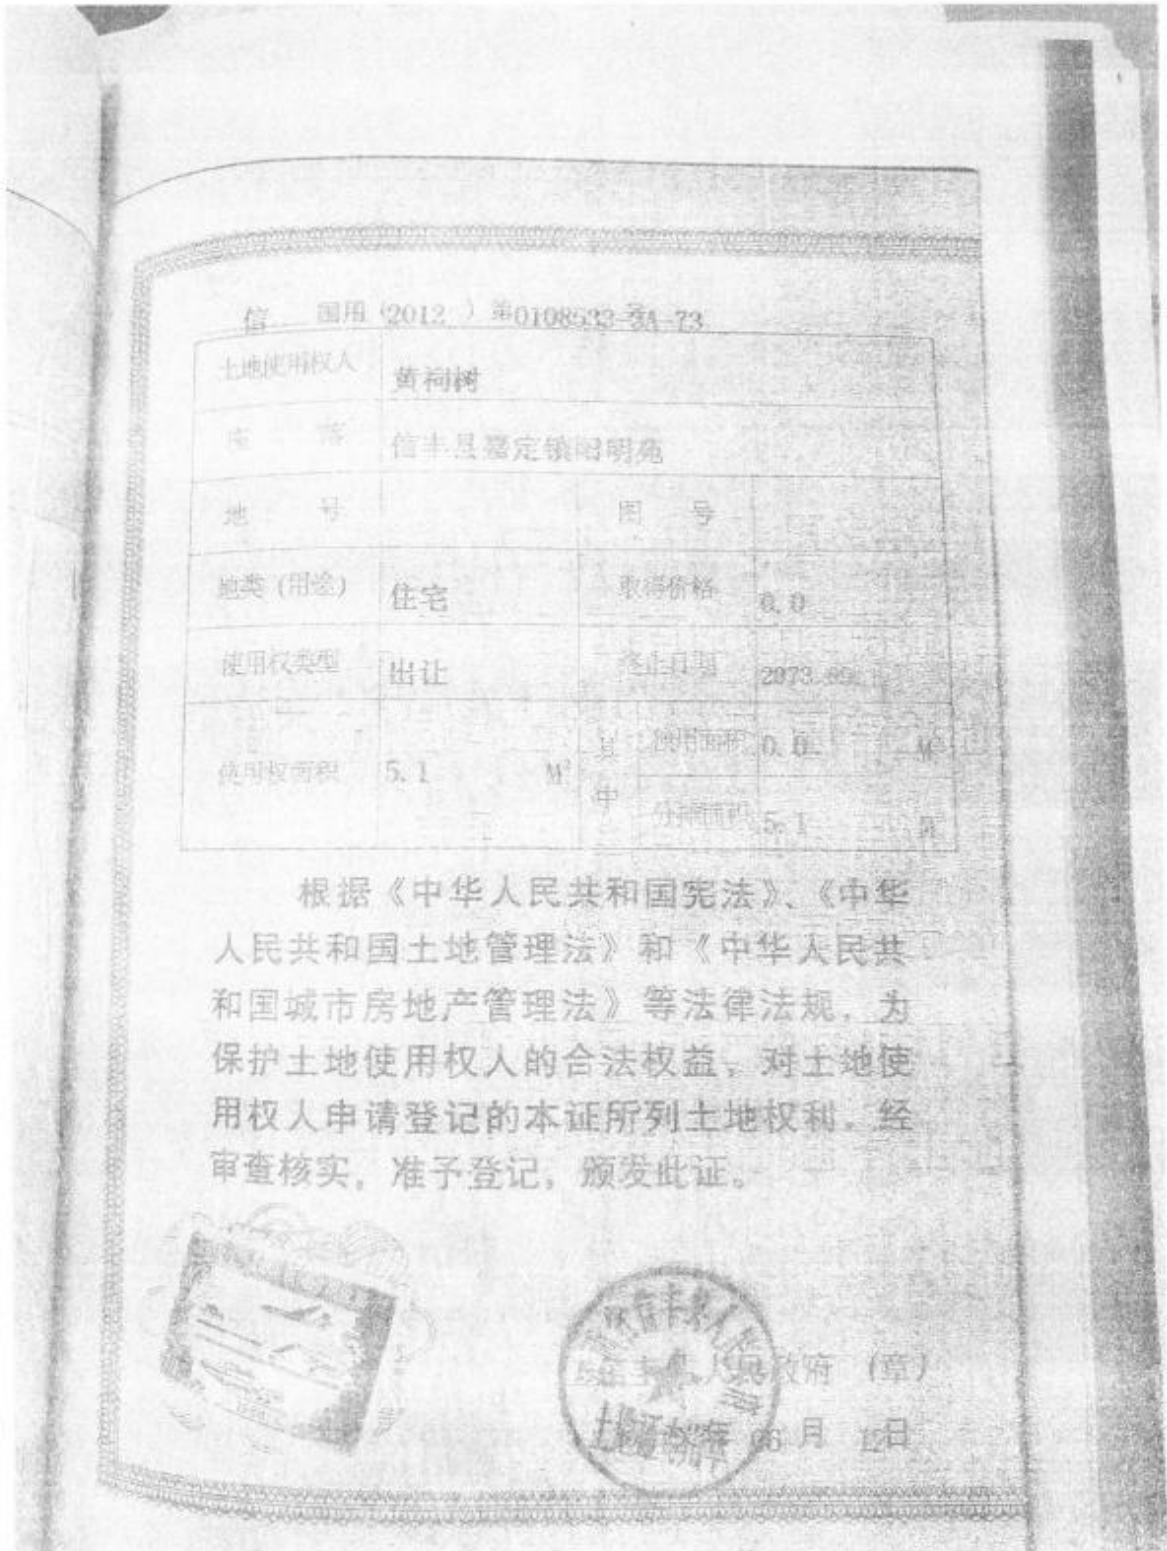 信 国用 (2012 ) 第0108533号3A-73
土地使用权人 黄祠树
座 落 信丰县嘉定镇阳明苑
地 号 图 号
地类 (用途) 住宅 取得价格 0.0
使用权类型 出让 终止日期
使用权面积 5.1 M² 其中 使用面积 0.0 M²
分摊面积 5.1 M²
根据《中华人民共和国宪法》、《中华
人民共和国土地管理法》和《中华人民共
和国城市房地产管理法》等法律法规，为
保护土地使用权人的合法权益，对土地使
用权人申请登记的本证所列土地权利，经
审查核实，准予登记，颁发此证。
信丰县人民政府 (章)
年 06 月 12日